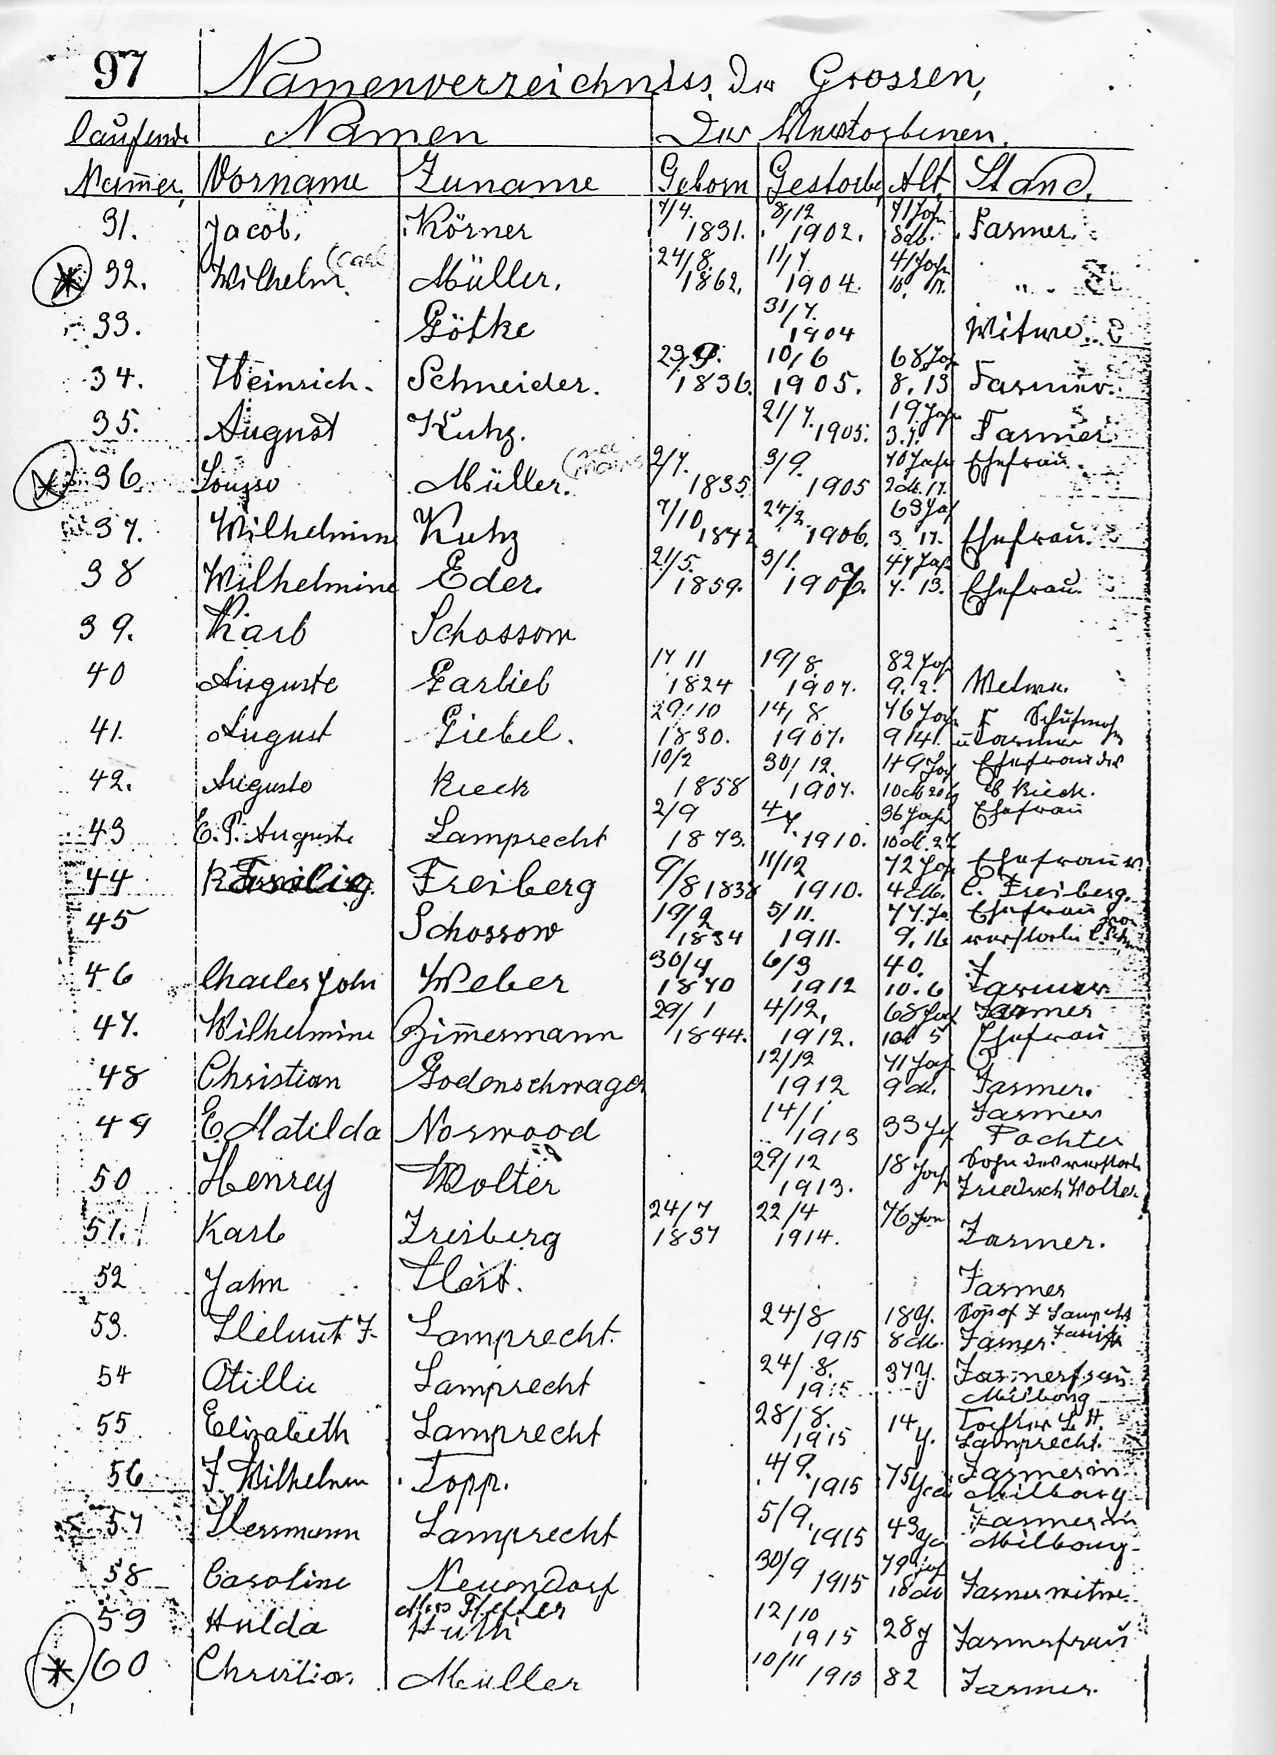 97 Namenverzeichniss, Der Grossen,
laufende Namen Der Verstorbenen.
Numer, Vorname Zuname Geborn Gestorbe Alt. Stand,
31. Jacob. Körner 7/4. 1831. 8/12 1902. 71 Jah 8 M. Farmer.
32. Wilhelm. (Carl Müller. 24/8. 1862. 11/7 1904. 41 Jah 10. 17. " "
33. Götke 31/7. 1904 Witwe.
34. Heinrich. Schneider. 1836. 10/6 1905. 68 Jah 8. 13 Farmer.
35. August Kutz. 21/7. 1905. 19 Jah Farmer
36. Louise Müller. (nee 2/7. 1835 3/9. 1905 70 Jah 2 M. 17. Ehefrau.
37. Wilhelmine Kutz 7/10 1842 24/2. 1906. 63 Jah 3 17. Ehefrau.
38 Wilhelmine Eder. 21/5. 1859. 3/1. 1907. 47 Jah 7. 13. Ehefrau.
39. Karl Schossow
40 Auguste Garlieb 17 11 1824 19/8 1907. 82 Jah 9. 2. Wetwe.
41. August Giebel. 29/10 1830. 14/8 1907. 76 Jah 9 14. F Schuhmach u Farmer
42. Auguste Rieck 10/2 1858 30/12. 1907. 49 Jah 10 M 20 Ehefrau des Rieck.
43 E. P. Auguste Lamprecht 2/9 1873. 4/7. 1910. 36 Jah 10 M. 22 Ehefrau
44 Freiberg 9/8 1838 11/12 1910. 72 Jah 4 M. Ehefrau v. C. Freiberg.
45 Schossow 19/2 1834 5/11. 1911. 77. Ja 9. 16 Ehefrau von verstorbe C. Sch
46 Charles John Weber 30/4 1870 6/3 1912 40. 10. 6 Farmer.
47. Wilhelmine Zimmermann 29/1 1844. 4/12, 1912. 68 Jah 10 5 Farmer Ehefrau
48 Christian Godenschwager 12/12 1912 71 Jah 9 M. Farmer.
49 E. Matilda Norwood 14/1 1913 33 Jah Farmer Pachter
50 Henrey Wolter 29/12 1913. 18 Jah Sohn des verstorb Friedrich Wolter
51. Karl Freiberg 24/7 1837 22/4 1914. 76 Jar Farmer.
52 Jahn Farmer
53. Helmut F. Lamprecht. 24/8 1915 18 Y. 8 M. Son of F Lamprecht Famer
54 Otillie Lamprecht 24/8. 1915 37 Y. Farmerfrau Milbong
55 Elizabeth Lamprecht 28/8. 1915 14 Y. Tochter L. H. Lamprecht.
56 F. Wilhelmm Topp. 4/9. 1915 75 Farmer in Milbong
57 Hermann Lamprecht 5/9. 1915 43 Farmer in Milbong
58 Caroline Neuendorf 30/9 1915 79 Farmerwitwe.
59 Hulda Mrs Pfeffer Huth 12/10 1915 28 y Farmerfrau
60 Christian Müller 10/11 1915 82 Farmer.